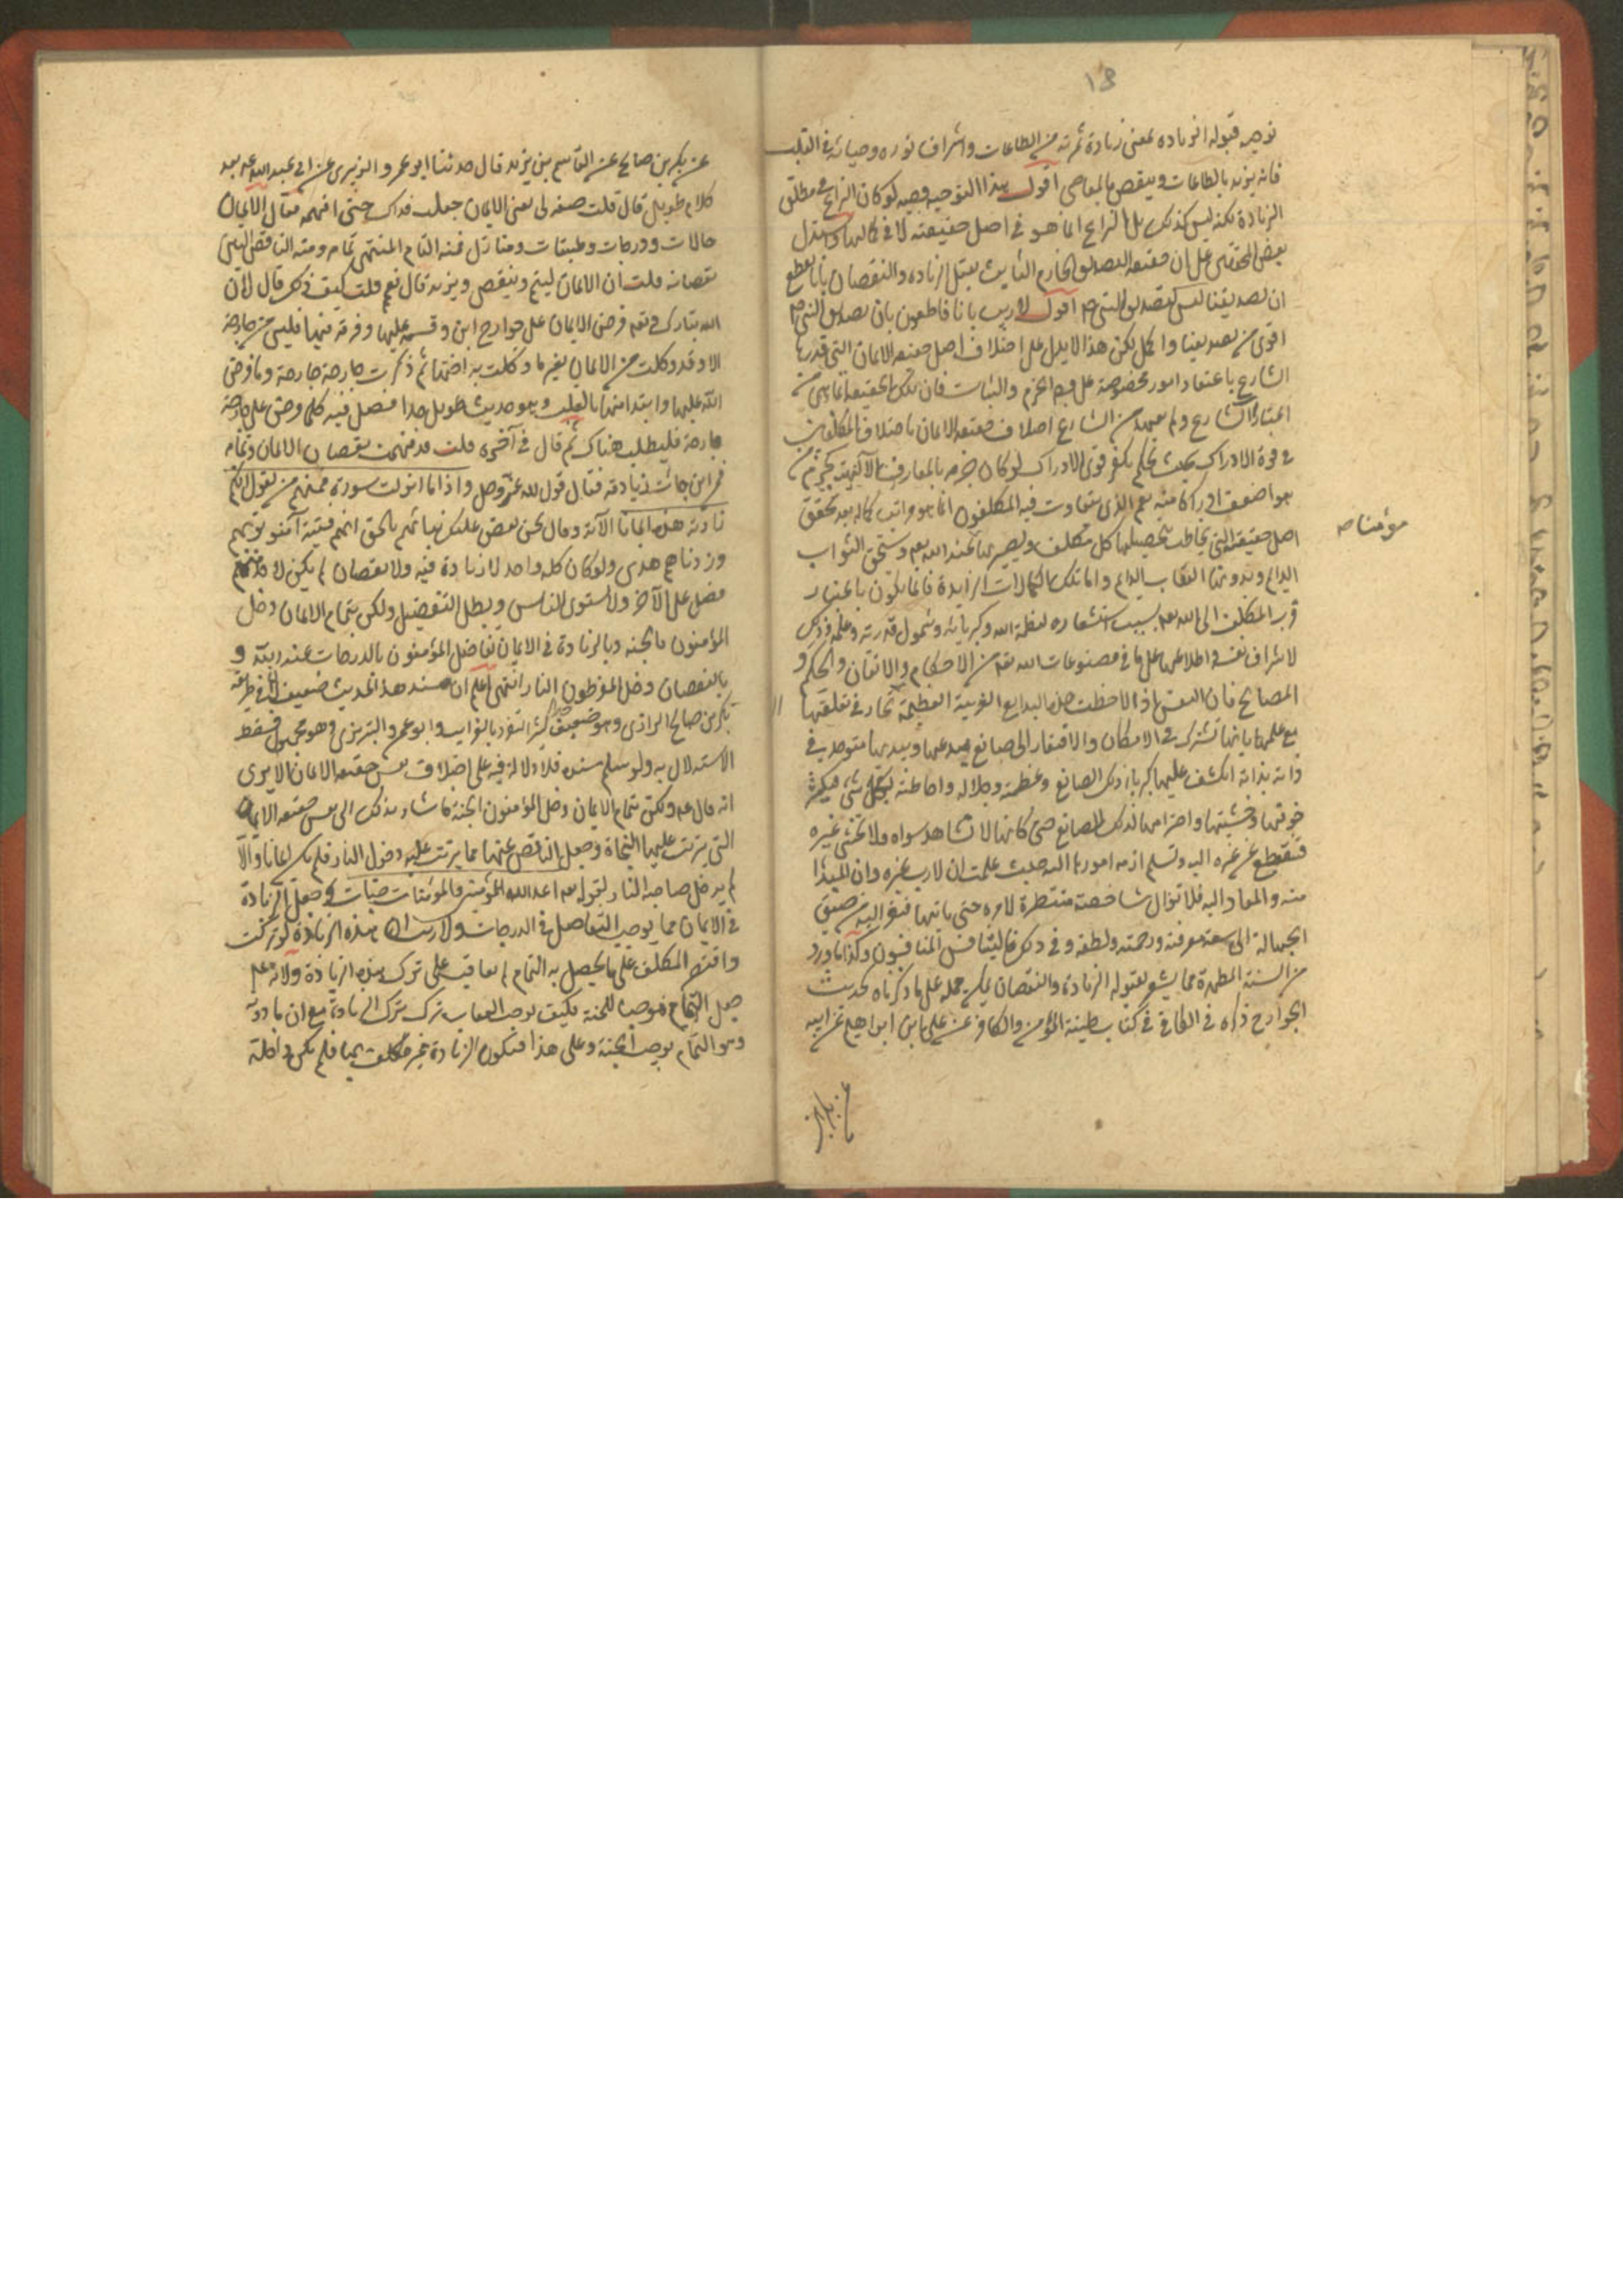 ١٣
توجيه قبوله الزيادة بمعنى زيادة ثمرته من الطاعات واشراق نوره وضيائه في القلب
فانه يزيد بالطاعات وينقص بالمعاصي اقول هذا التوجيه وجيه لو كان النزاع في مطلق
الزيادة لكنه ليس كذلك بل النزاع انما هو في اصل حقيقته لا في كمالها واستدل
بعض المحققين على ان حقيقة التصديق الجازم الثابت يقبل الزيادة والنقصان بانا نقطع
ان تصديقنا ليس كتصديق النبي ص اقول لا ريب بانا قاطعون بان تصديق النبي ص
اقوى من تصديقنا واكمل لكن هذا لا يدل على اختلاف اصل حقيقة الايمان التي قدرها
الشارع باعتقاد امور مخصوصة على وجه الجزم والثبات فان تلك الحقيقة انما هي من
اعتبار الشارع ولم يعهد من الشارع اختلاف حقيقة الايمان باختلاف المكلفين
في قوة الادراك بحيث يحكم بكفر قوى الادراك لو كان جزمه بالمعارف الالهية كجزم من
هو اضعف ادراكا منه نعم الذي يتفاوت فيه المكلفون انما هو مراتب كماله بعد تحقق
اصل حقيقته التي يخاطب بتحصيلها كل مكلف ويصير بها عند الله تعالى ويستحق الثواب
مؤمنا صه
الدايم وبدونها العقاب الدايم واما تلك الكمالات الزايدة فانما يكون باعتبار
قرب المكلف الى الله تعالى بسبب استشعاره لعظمة الله وكبريائه وشمول قدرته وعلمه وذلك
لاشراف نفسه واطلاعها على ما في مصنوعات الله تعالى من الاحكام والاتقان والحكم و
المصالح فان النفس اذا لاحظت هذه البدايع الغريبة العظيمة تحار في تعلقها
مع علمها بانها تشترك في الامكان والافتقار الى صانع يبدعها ويبديها متوحد في
ذاته بذاته انكشف عليها كبرياء ذلك الصانع وعظمته وجلاله واحاطته بكل شئ فيكثر
خوفها وخشيتها واحترامها لذلك الصانع حتى كانها لا تشاهد سواه ولا تخشى غيره
فتنقطع عن غيره اليه وتسلم ازمة امورها اليه حيث علمت ان لا رب غيره وان المبدأ
منه والمعاد اليه فلا تزال شاخصة منتظرة لامره حتى ياتيها فتفر اليه من ضيق
الجهالة الى سعة معرفته ورحمته ولطفه وفي ذلك فليتنافس المتنافسون وكذا ما ورد
من السنة المطهرة مما يشعر بقبوله الزيادة والنقصان يمكن حمله على ما ذكرناه كحديث
الجوارح ذكره في الكافي في كتاب طينة المؤمن والكافر عن علي بن ابراهيم عن ابيه
عن بكر بن
عن بكر بن صالح عن القاسم بن يزيد قال حدثنا ابو عمرو الزبيري عن ابي عبد الله ع بعد
كلام طويل قال قلت صفه لي يعني الايمان جعلت فداك حتى افهمه فقال الايمان
حالات ودرجات وطبقات ومنازل فمنه التام المنتهى تمامه ومنه الناقص البين
نقصانه قلت ان الايمان ليتم وينقص ويزيد قال نعم قلت كيف ذلك قال لان
الله تبارك وتعالى فرض الايمان على جوارح ابن وقسمه عليها وفرقه فيها فليس من جارحة
الا وقد وكلت من الايمان بغير ما وكلت به اختها ثم ذكرت جارحة جارحة وما فرض
الله عليها وابتدا منها بالقلب وهو حديث طويل جدا فصل فيه كلما فرض على جارحة
جارحة فليطلب هناك ثم قال في آخره قلت قد فهمت نقصان الايمان وتمامه
فمن اين جائت زيادته فقال قول الله عز وجل واذا ما انزلت سورة فمنهم من يقول ايكم
زادته هذه ايمانا الآية وقال نحن نقص عليك نبائهم بالحق انهم فتية آمنوا بربهم
وزدناهم هدى ولو كان كله واحد لا زيادة فيه ولا نقصان لم يكن لاحد منهم
فضل على الآخر ولاستوى الناس وبطل التفضيل ولكن بتمام الايمان دخل
المؤمنون الجنة وبالزيادة في الايمان تفاضل المؤمنون بالدرجات عند الله و
بالنقصان دخل المفرطون النار انتهى اعلم ان سند هذا الحديث ضعيف لان في طريقه
بكر بن صالح الرازي وهو ضعيف جدا كثير التفرد بالغرايب وابو عمرو الزبيري وهو مجهول فسقط
الاستدلال به ولو سلم سنده فلا دلالة فيه على اختلاف نفس حقيقة الايمان الا يرى
انه قال ع ولكن بتمام الايمان دخل المؤمنون الجنة فاشار بذلك الى نفس حقيقة الايمان
التي يترتب عليها النجاة وجعل الناقص عنها مما يترتب عليه دخول النار فلم يكن ايمانا والا
لم يدخل صاحبه النار لقوله تعالى اعد الله للمؤمنين والمؤمنات جنات وجعل الزيادة
في الايمان مما يوجب التفاضل في الدرجات ولا ريب ان هذه الزيادة لو تركت
واقتصر المكلف على ما يحصل به التمام لم يعاقب على ترك هذه الزيادة ولانه ع
جعل التمام موجبا للجنة فكيف يوجب العقاب ترك الزيادة مع ان ما دونه
وهو التمام يوجب الجنة وعلى هذا فتكون الزيادة غير مكلف بها فلم يكن داخلة